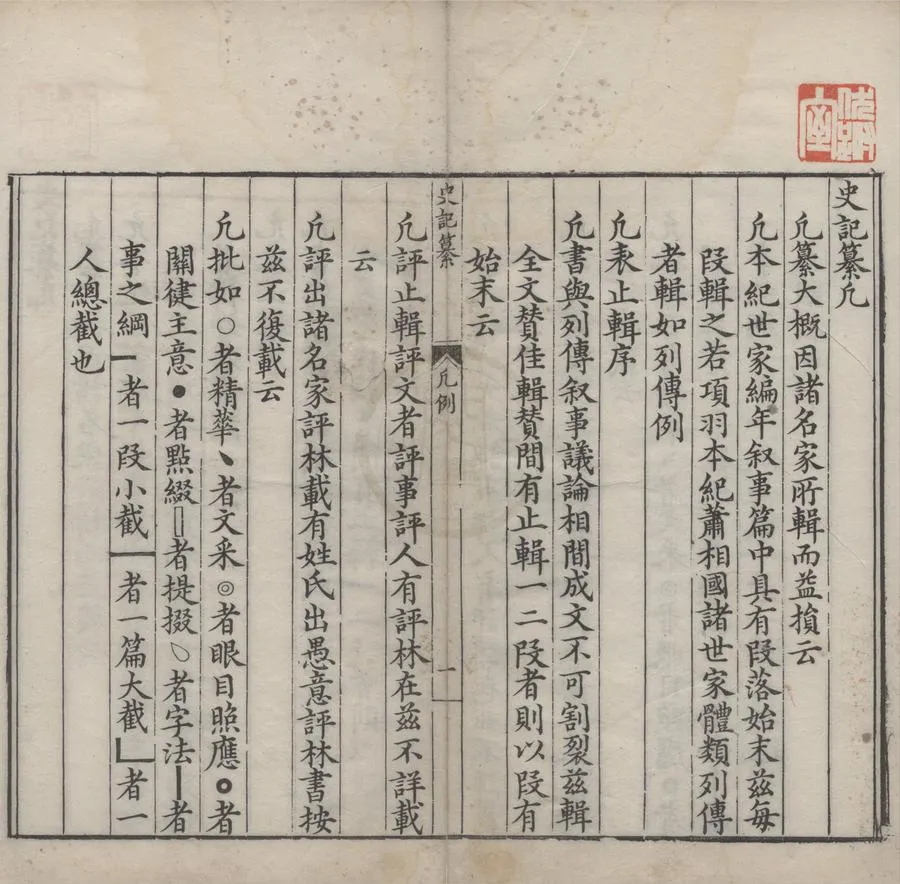 史記纂凡
凡纂大概因諸名家所輯而益損云
凡本紀世家編年叙事篇中具有段落始末茲每
段輯之若項羽本紀蕭相國諸世家體類列傳
者輯如列傳例
凡表止輯序
凡書與列傳叙事議論相間成文不可割裂茲輯
全文贊佳輯贊間有止輯一二段者則以段有
始末云
史記纂
凡例
一
凡評止輯評文者評事評人有評林在茲不詳載
云
凡評出諸名家評林載有姓氏出愚意評林書按
茲不復載云
凡批如○者精華﹅者文采◎者眼目照應⚬者
關徤主意•者點綴‖者提掇﹆者字法┃者
事之綱━者一段小截━者一篇大截┗┛者一
人總截也